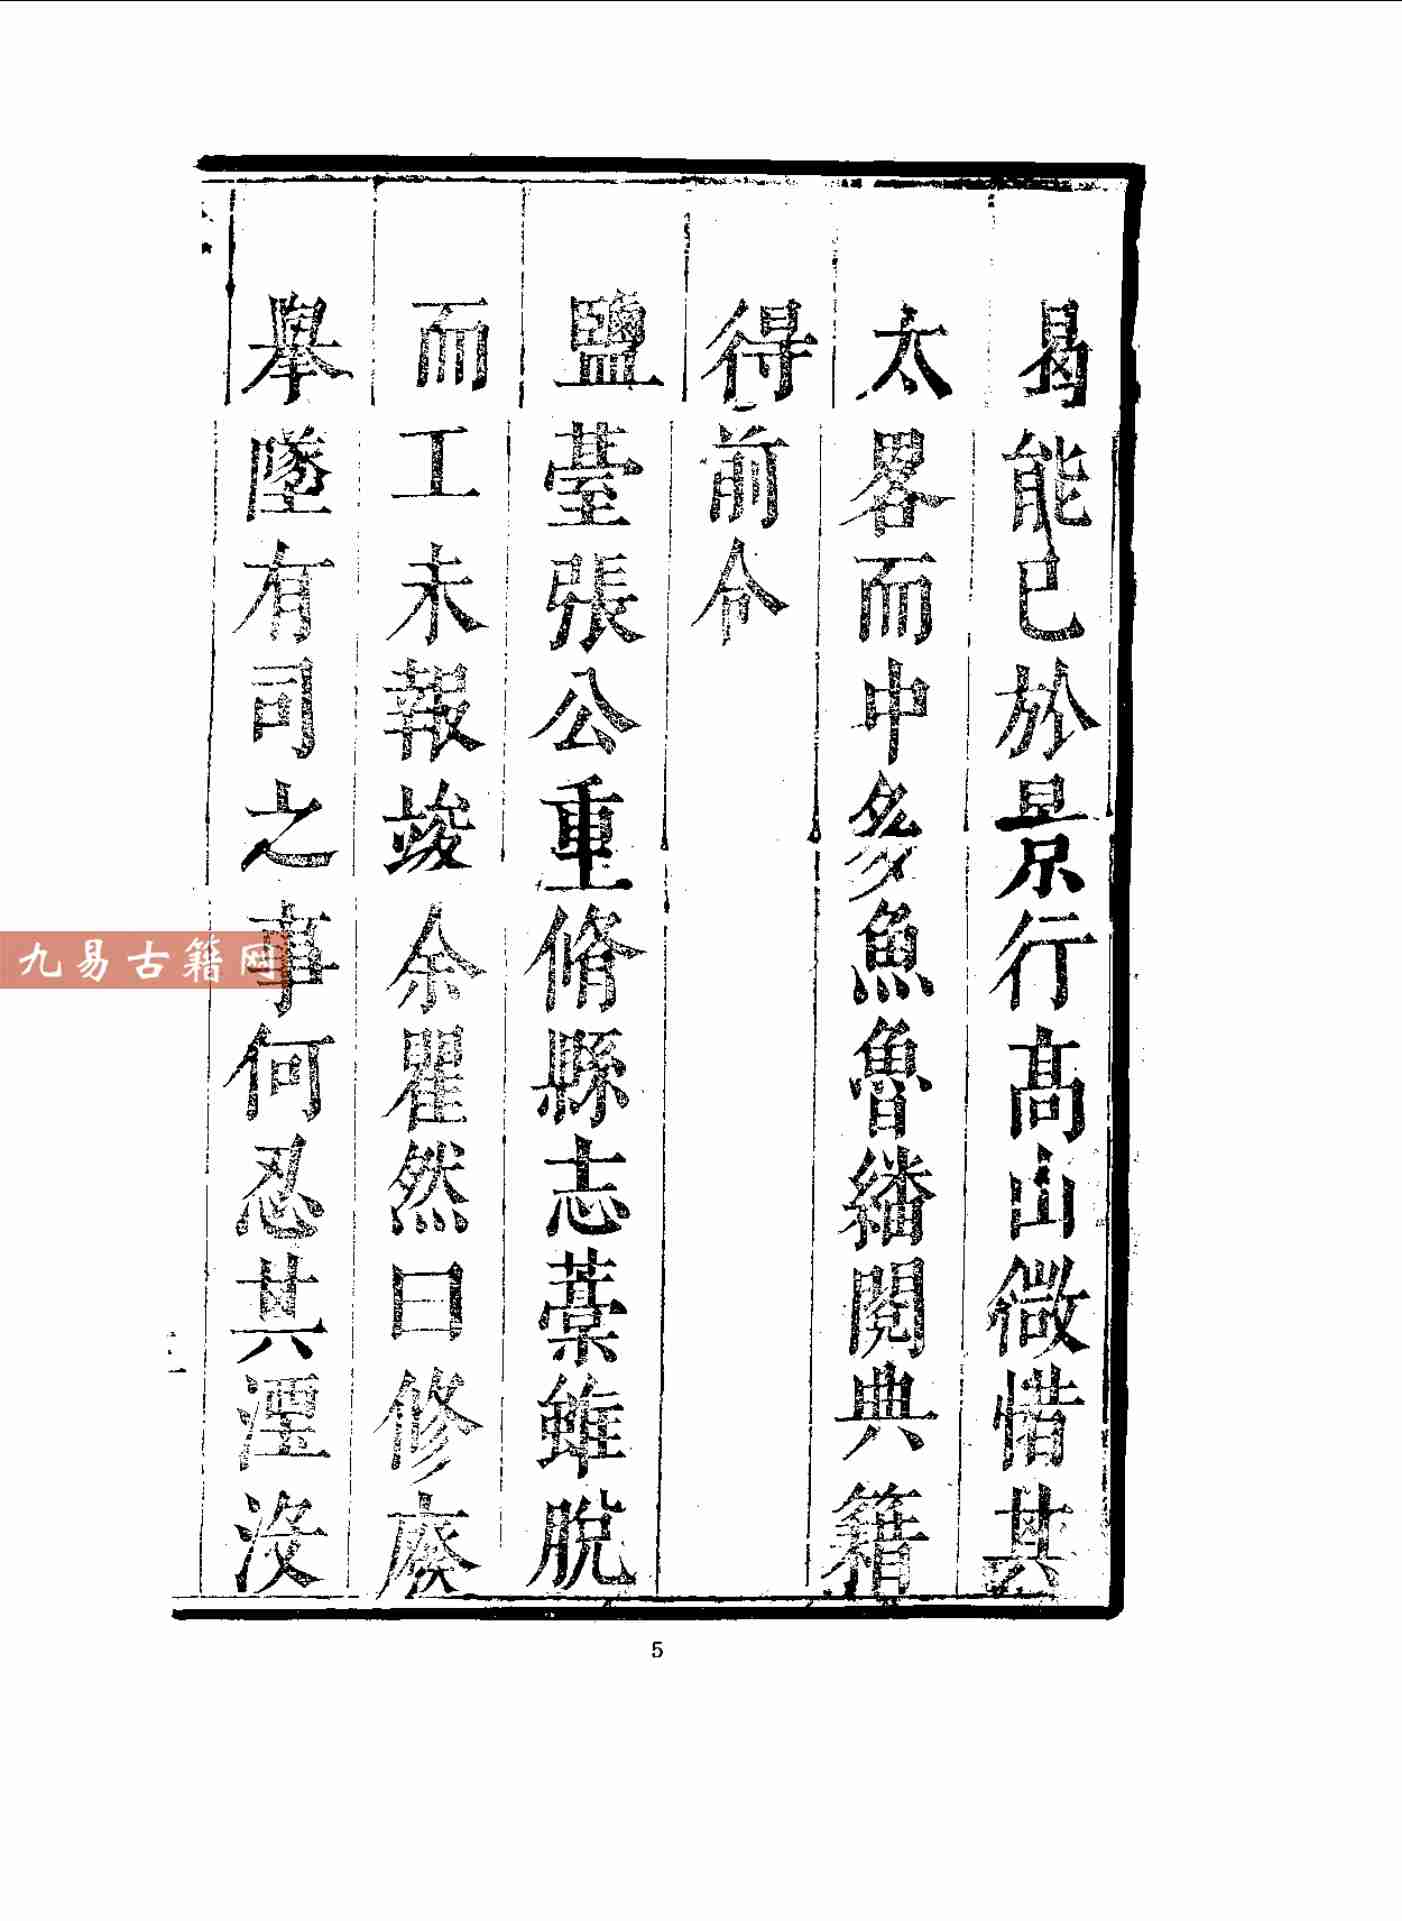 曷能已於景行高山微惜其
太畧而中多魚魯繙閱典籍
得前令
鹽臺張公重脩縣志藁雖脫
而工未報竣余瞿然曰修廢
舉墜有司之事何忍其湮沒
九易古籍网
5